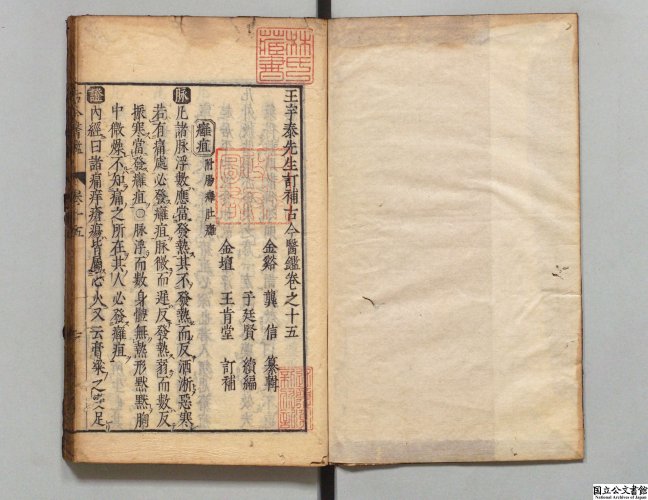 王宇泰先生訂補古今醫鑑卷之十五
金谿 龔信 纂輯
子廷賢 續編
金壇 王肯堂 訂補
癰疽 附腸癰肚癰
脉 凡諸脉浮數應當發熱其不發熱而反洒淅惡寒
若有痛處必發癰疽脉微而遲反發熱弱而數反
振寒當發癰疽○脉浮而數身體無熱形默默胸
中微燥不知痛之所在其人必發癰疽
證 內經曰諸痛痒瘡瘍皆屬心火又云膏粱之變足
古今醫鑑 卷十五
林氏藏書
国立公文書館
National Archives of Japan